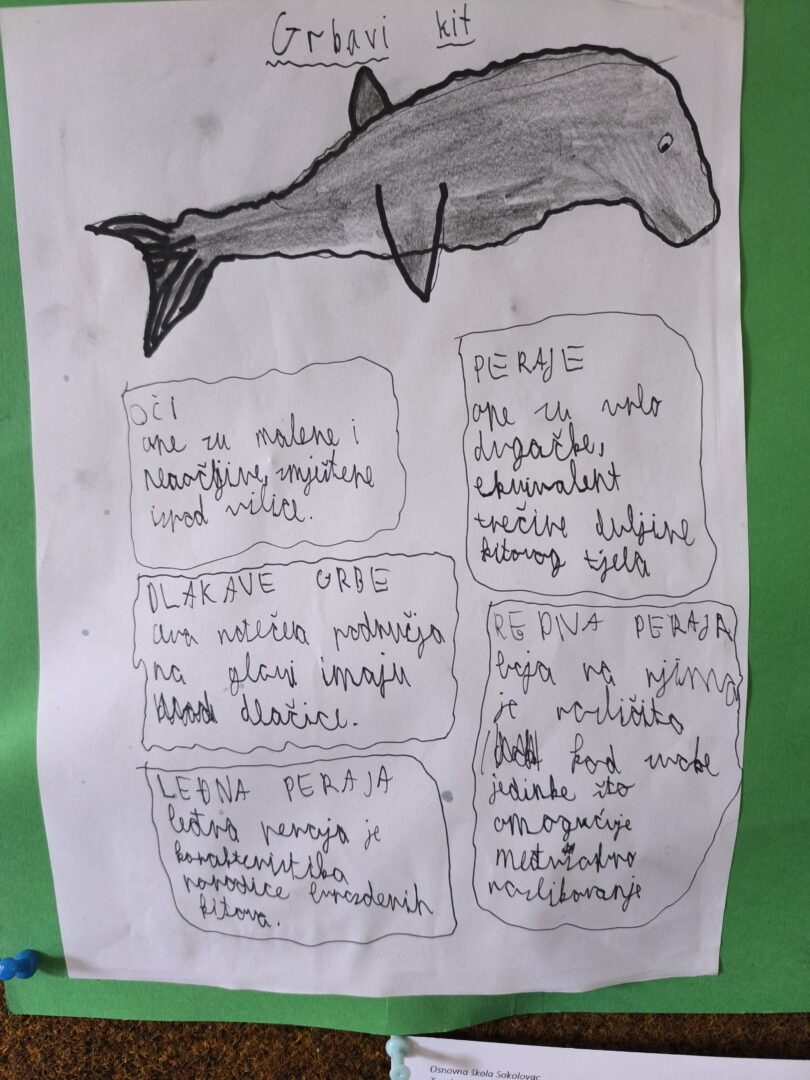 Grbavi kit
OČI
one su malene i
neaočljive, smještene
ispod vilice.
PERAJE
one su vrlo
dugačke,
ekvivalent
trećine duljine
kitovog tjela
DLAKAVE GRBE
ova natečea područja
na glavi imaju
dlačice.
REPNA PERAJA
boja na njima
je različita
kod svake
jedinke što
omogućuje
međusobno
razlikovanje
LEĐNA PERAJA
leđna peraja je
karakteristika
porodice brazdenih
kitova.
Osnovna škola Sokolovac